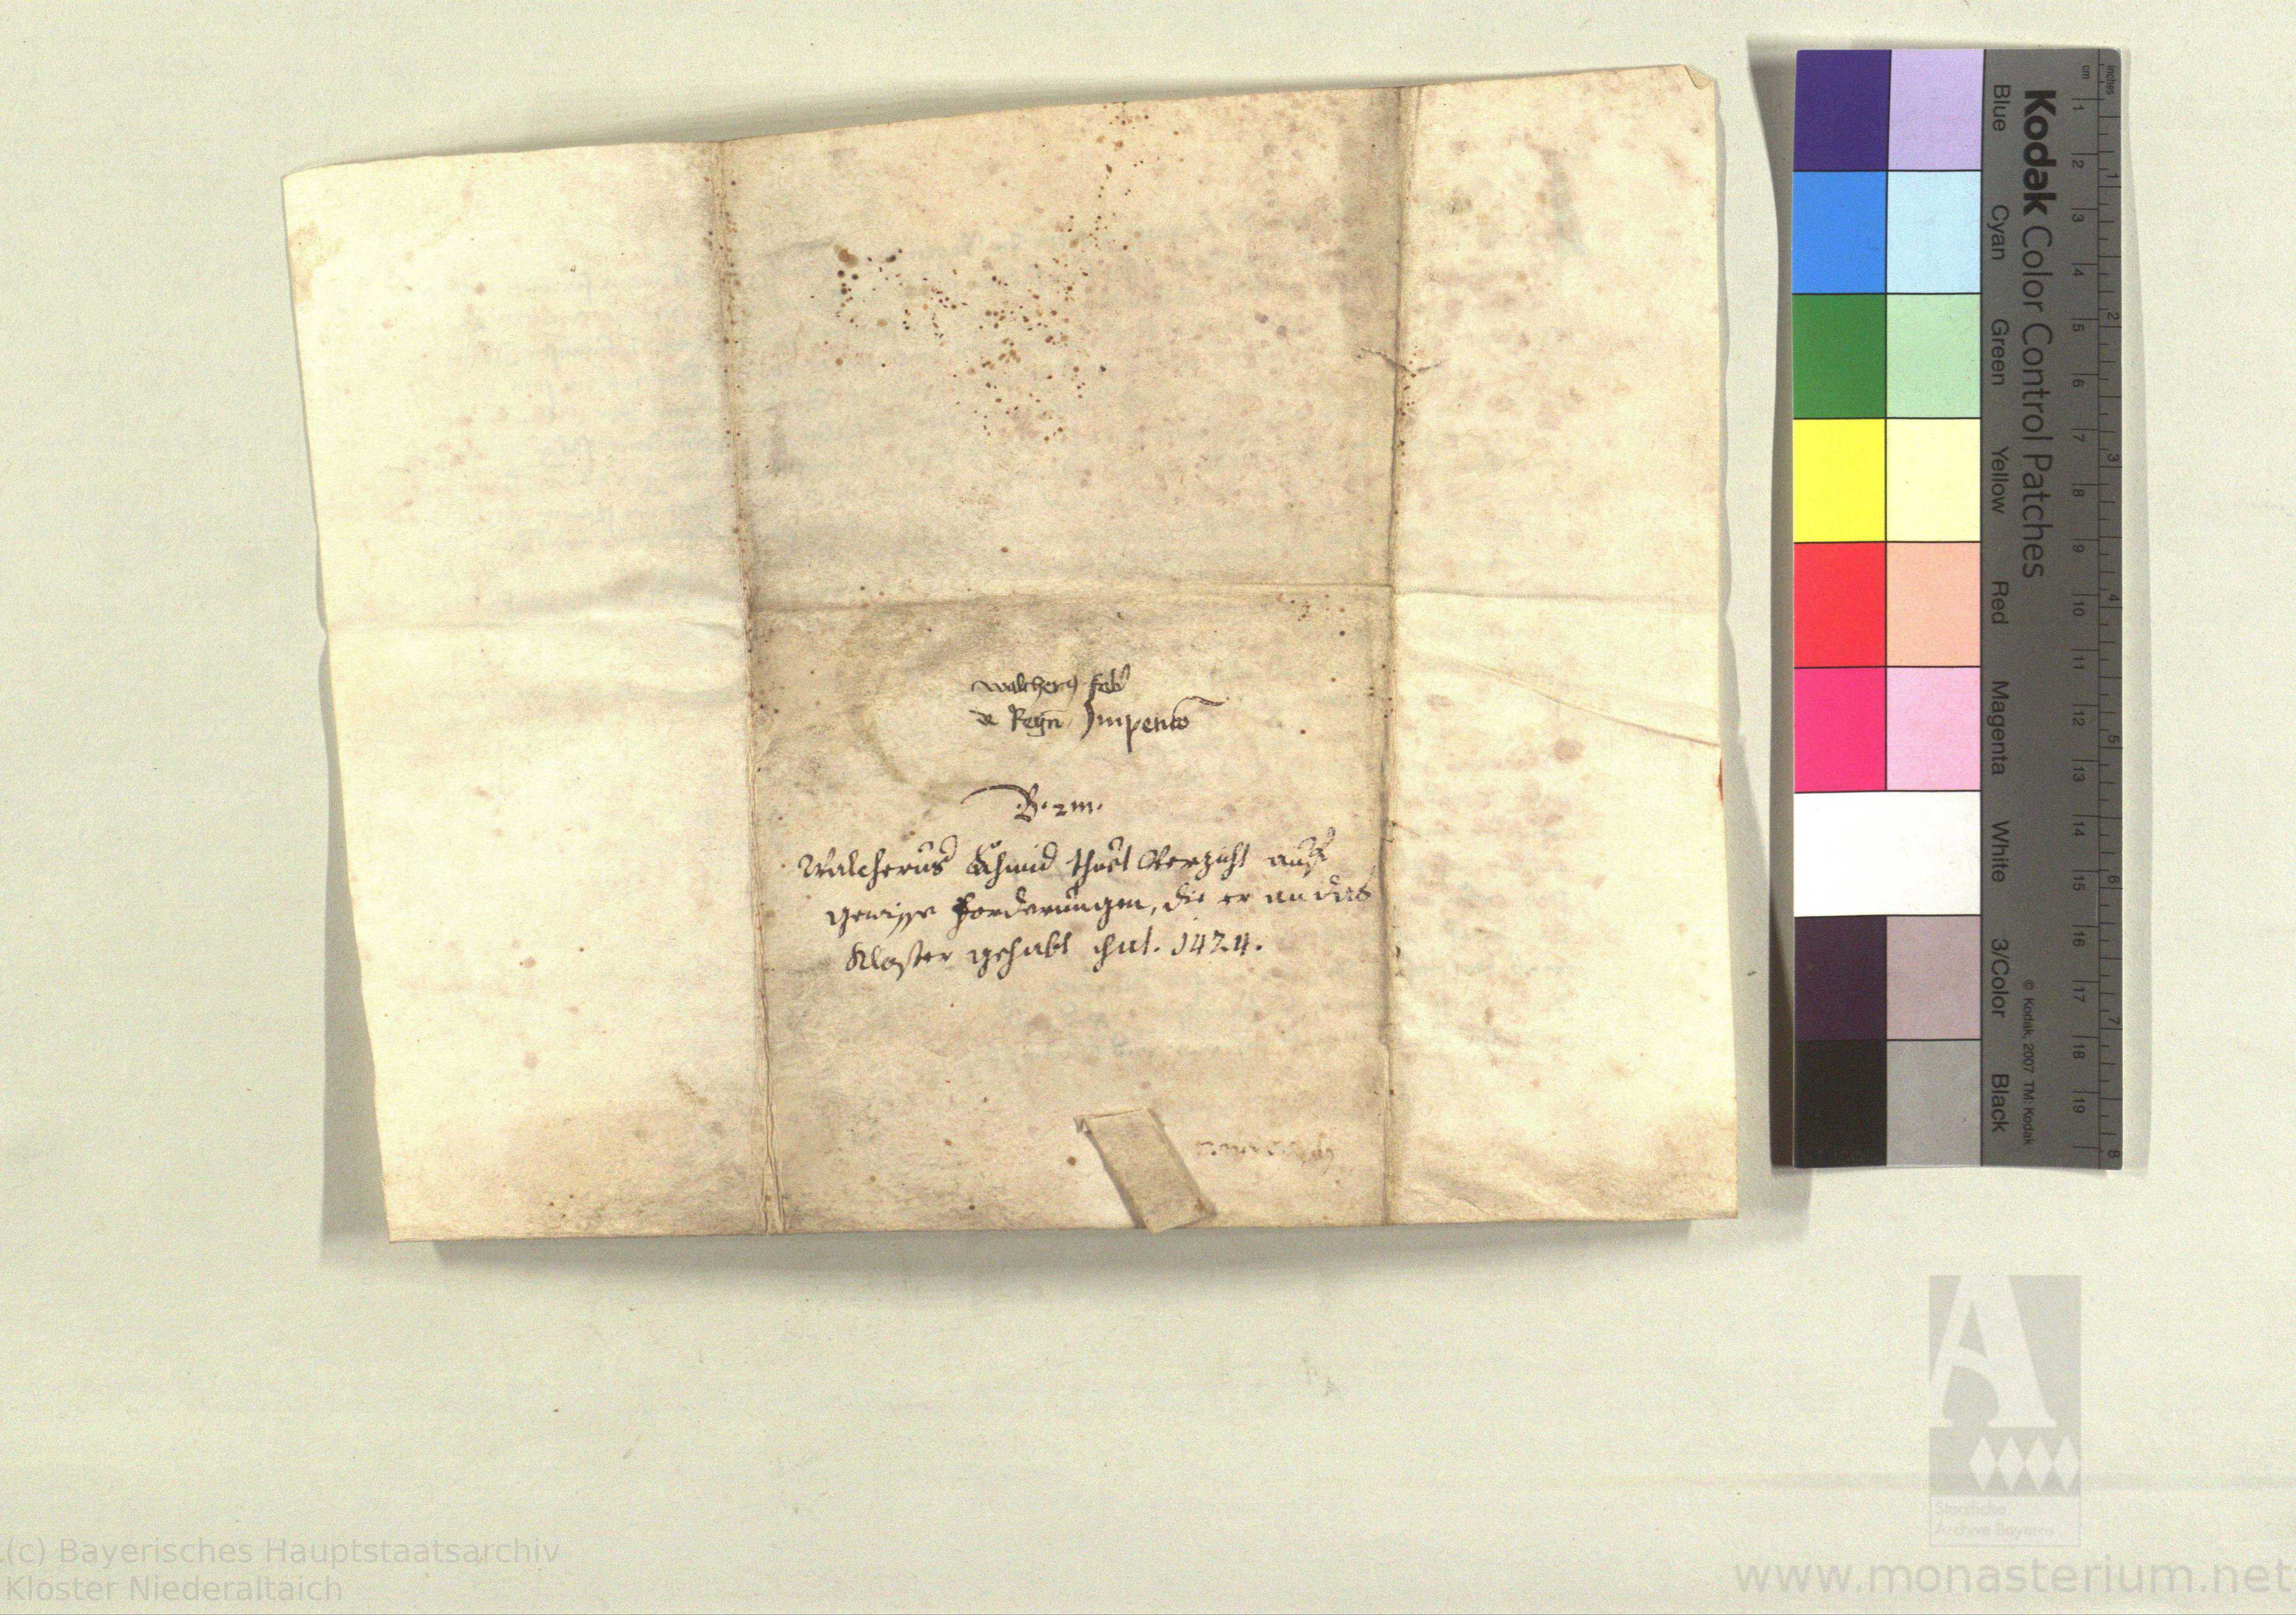 walcherꝯ fab͛
de Regn̄
B. 2m.
Walcherus Schmid thuet Verzicht auff
gewisse Forderungen, die er an das
Kloster gehabt hat. 1424.
Kodak Color Control Patches
Blue Cyan Green Yellow Red Magenta White 3/Color Black
© Kodak, 2007 TM: Kodak
cm 1 2 3 4 5 6 7 8 9 10 11 12 13 14 15 16 17 18 19
inches 1 2 3 4 5 6 7 8
Staatliche
Archive Bayerns
(c) Bayerisches Hauptstaatsarchiv
Kloster Niederaltaich
www.monasterium.net